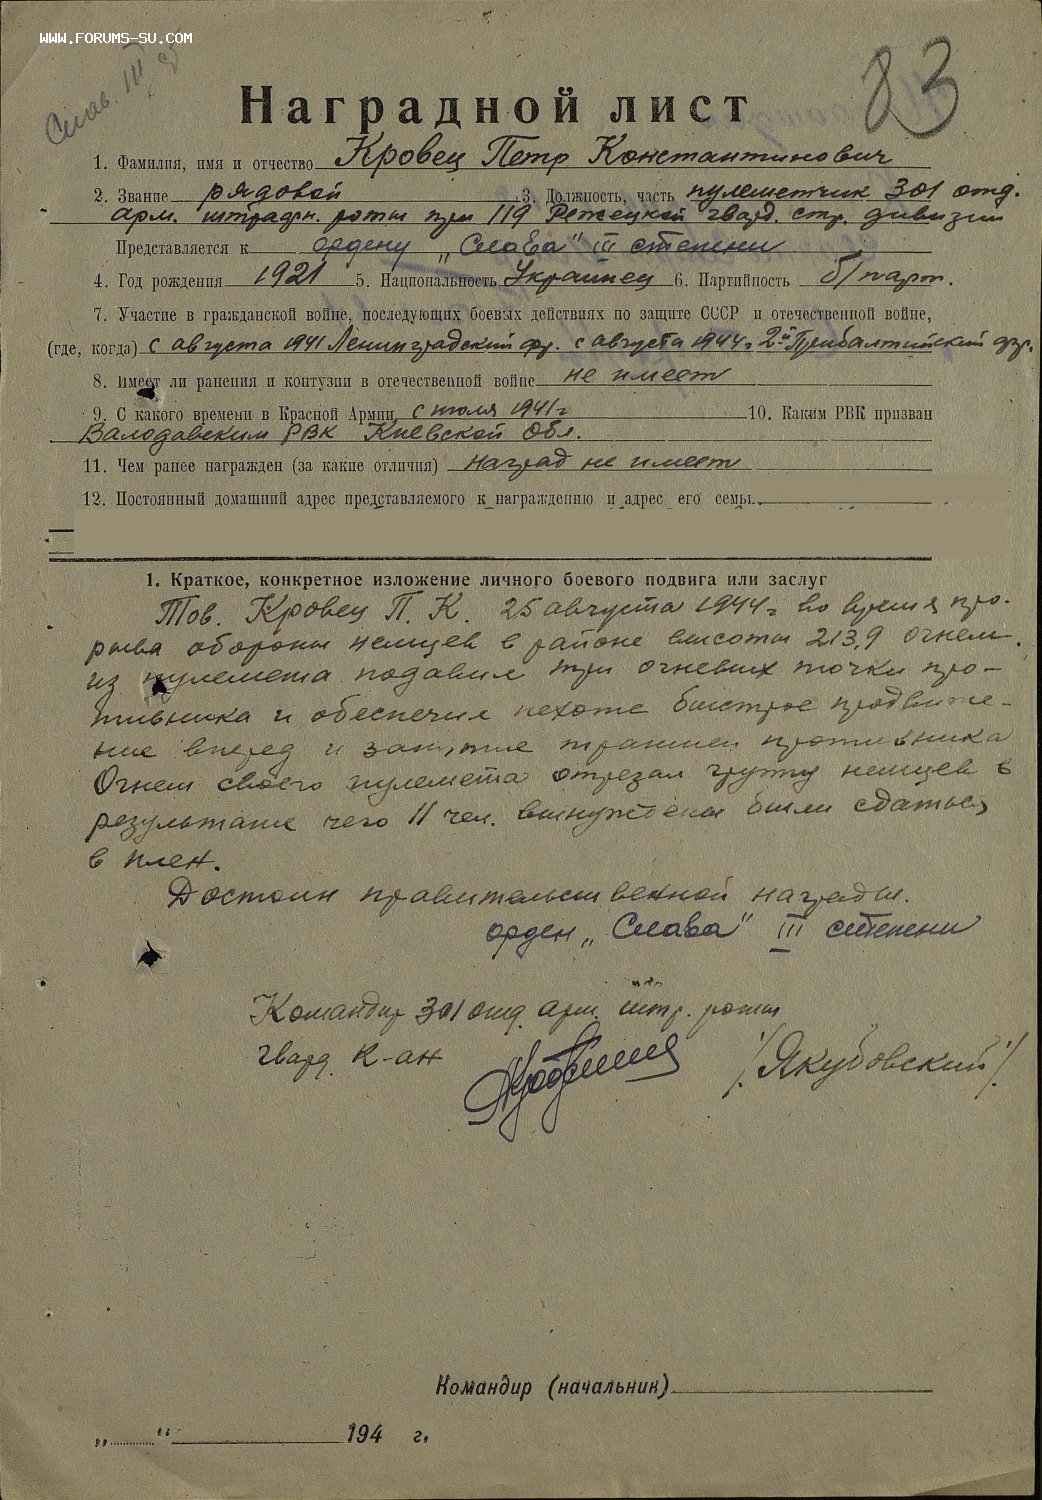 WWW.FORUMS-SU.COM
Слав. III
83
Наградной лист
1. Фамилия, имя и отчество Кровец Петр Константинович
2. Звание рядовой 3. Должность, часть пулеметчик 301 отд.
арм. штрафн. роты при 119 Режецкой гвард. стр. дивизии
Представляется к ордену „Слава" III степени
4. Год рождения 1921 5. Национальность Украинец 6. Партийность б/парт.
7. Участие в гражданской войне, последующих боевых действиях по защите СССР и отечественной войне,
(где, когда) с августа 1941 Ленинградский фр. с августа 1944 г 2й Прибалтийский фр.
8. Имеет ли ранения и контузии в отечественной войне не имеет
9. С какого времени в Красной Армии с июля 1941 г 10. Каким РВК призван
Валодавским РВК Киевской Обл.
11. Чем ранее награжден (за какие отличия) наград не имеет
12. Постоянный домашний адрес представляемого к награждению и адрес его семьи
1. Краткое, конкретное изложение личного боевого подвига или заслуг
Тов. Кровец П. К. 25 августа 1944 г во время про-
рыва обороны немцев в районе высоты 213,9 огнем
из пулемета подавил три огневых точки про-
тивника и обеспечил пехоте быстрое продвиже-
ние вперед и занятие траншеи противника
Огнем своего пулемета отрезал группу немцев в
результате чего 11 чел. вынуждены были сдаться
в плен.
Достоин правительственной награды.
орден „Слава" III степени
Командир 301 отд. арм. штр. роты
гвард. к-ан /Якубовский/
Командир (начальник)
„ " 194 г.